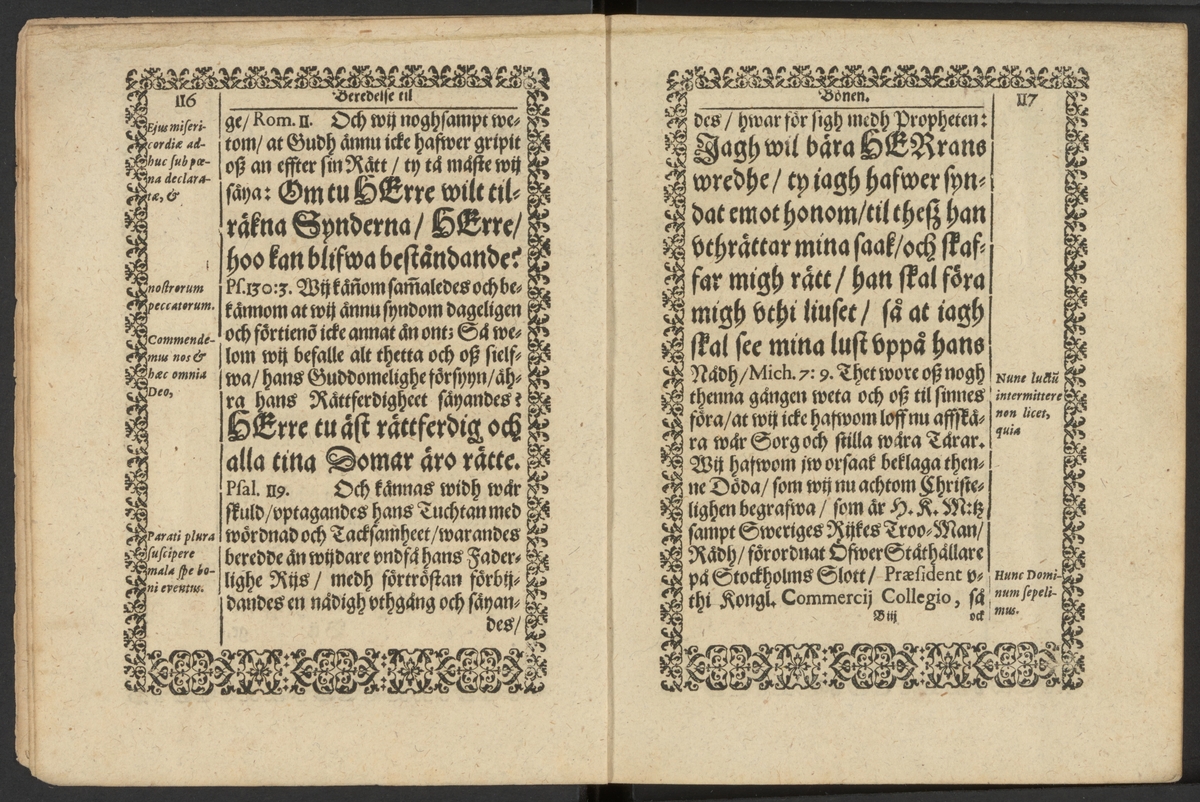 116
Beredelse til
Ejus miseri-
cordiæ ad-
huc sub pœ-
na declara-
tæ, &
nostrorum
peccatorum.
Commende-
mus nos &
hæc omnia
Deo,
Parati plura
suscipere
mala spe bo-
ni eventus.
ge/ Rom. II. Och wij noghsampt we-
tom/ at Gudh ännu icke hafwer gripit
oß an effter sin Rätt / ty tå måste wij
säya: Om tu HErre wilt til-
räkna Synderna / HErre/
hoo kan blifwa beståndande?
Ps. 130:3. Wij käñom sam̃aledes och be-
kännom at wij ännu syndom dageligen
och förtienõ icke annat än ont: Så we-
lom wij befalle alt thetta och oß sielf-
wa/ hans Guddomelighe försyyn/äh-
ra hans Rättferdigheet säyandes?
HErre tu äst rättferdig och
alla tina Domar äro rätte.
Psal. 119. Och kännas widh wår
skuld/ vptagandes hans Tuchtan med
wördnad och Tacksamheet/ warandes
beredde än wijdare vndfå hans Fader-
lighe Rijs / medh förtröstan förbij-
dandes en nådigh vthgång och säyan-
des/
Bönen.
117
des / hwar för sigh medh Propheten:
Jagh wil bära HERrans
wredhe / ty iagh hafwer syn-
dat emot honom/til theß han
vthrättar mina saak/och skaf-
far migh rätt / han skal föra
migh vthi liuset / så at iagh
skal see mina lust vppå hans
Nådh/ Mich. 7: 9. Thet wore oß nogh
thenna gången weta och oß til sinnes
föra/at wij icke hafwom loff nu affskä-
ra wår Sorg och stilla wåra Tårar.
Wij hafwom jw orsaak beklaga then-
ne Döda/ som wij nu achtom Christe-
lighen begrafwa / som är H. K. M:tz
sampt Sweriges Rijkes Troo-Man/
Rådh/ förordnat ÖfwerStåthållare
på Stockholms Slott/ Præsident v-
thi Kongl. Commercij Collegio, så
B iij
ock
Nunc luctũ
intermittere
non licet,
quia
Hunc Domi-
num sepeli-
mus.